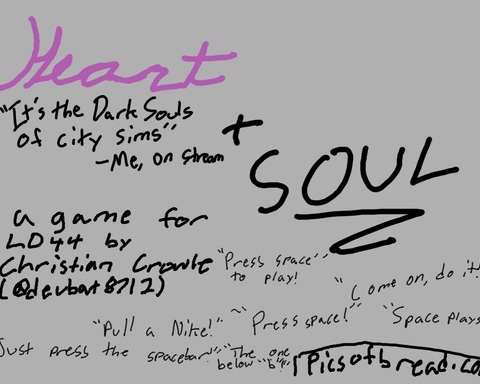 Heart
"It's the Dark Souls
of city sims"
-Me, on stream
+
SOUL
a game for
LD44 by
Christian Crowle
(@devbat8712)
"Press space"
to play!
"Come on, do it!
"Pull a Nike!"
~"Press space!"
"Space plays
Just press the spacebar!"
"The one
below "b"!"
Picsofbread.co